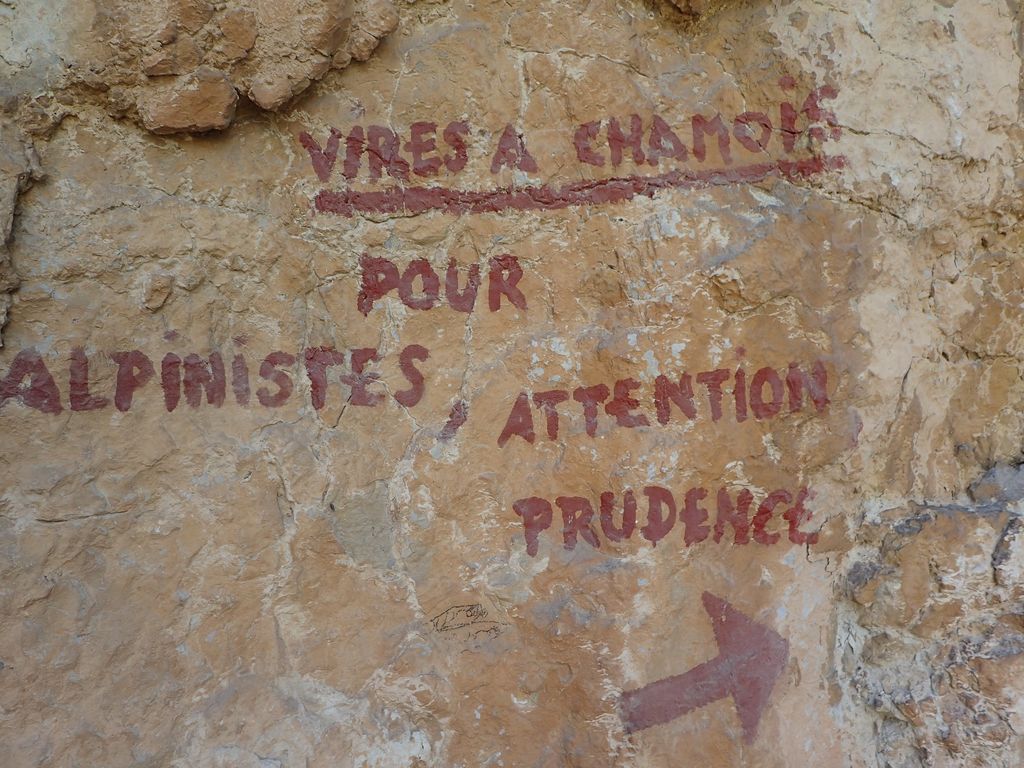 VIRES A CHAMOIS
POUR
ALPINISTES, ATTENTION
PRUDENCE